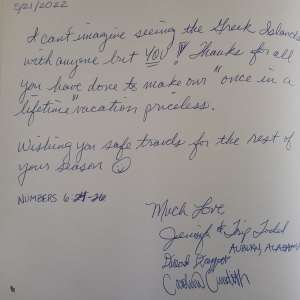 5/21/2022
I can't imagine seeing the Greek Islands
with anyone but YOU!! Thanks for all
you have done to make our "once in a
lifetime" vacation priceless.
Wishing you safe travels for the rest of
your season ☺
NUMBERS 6
Much Love
& Trip
AUBURN, ALABAMA